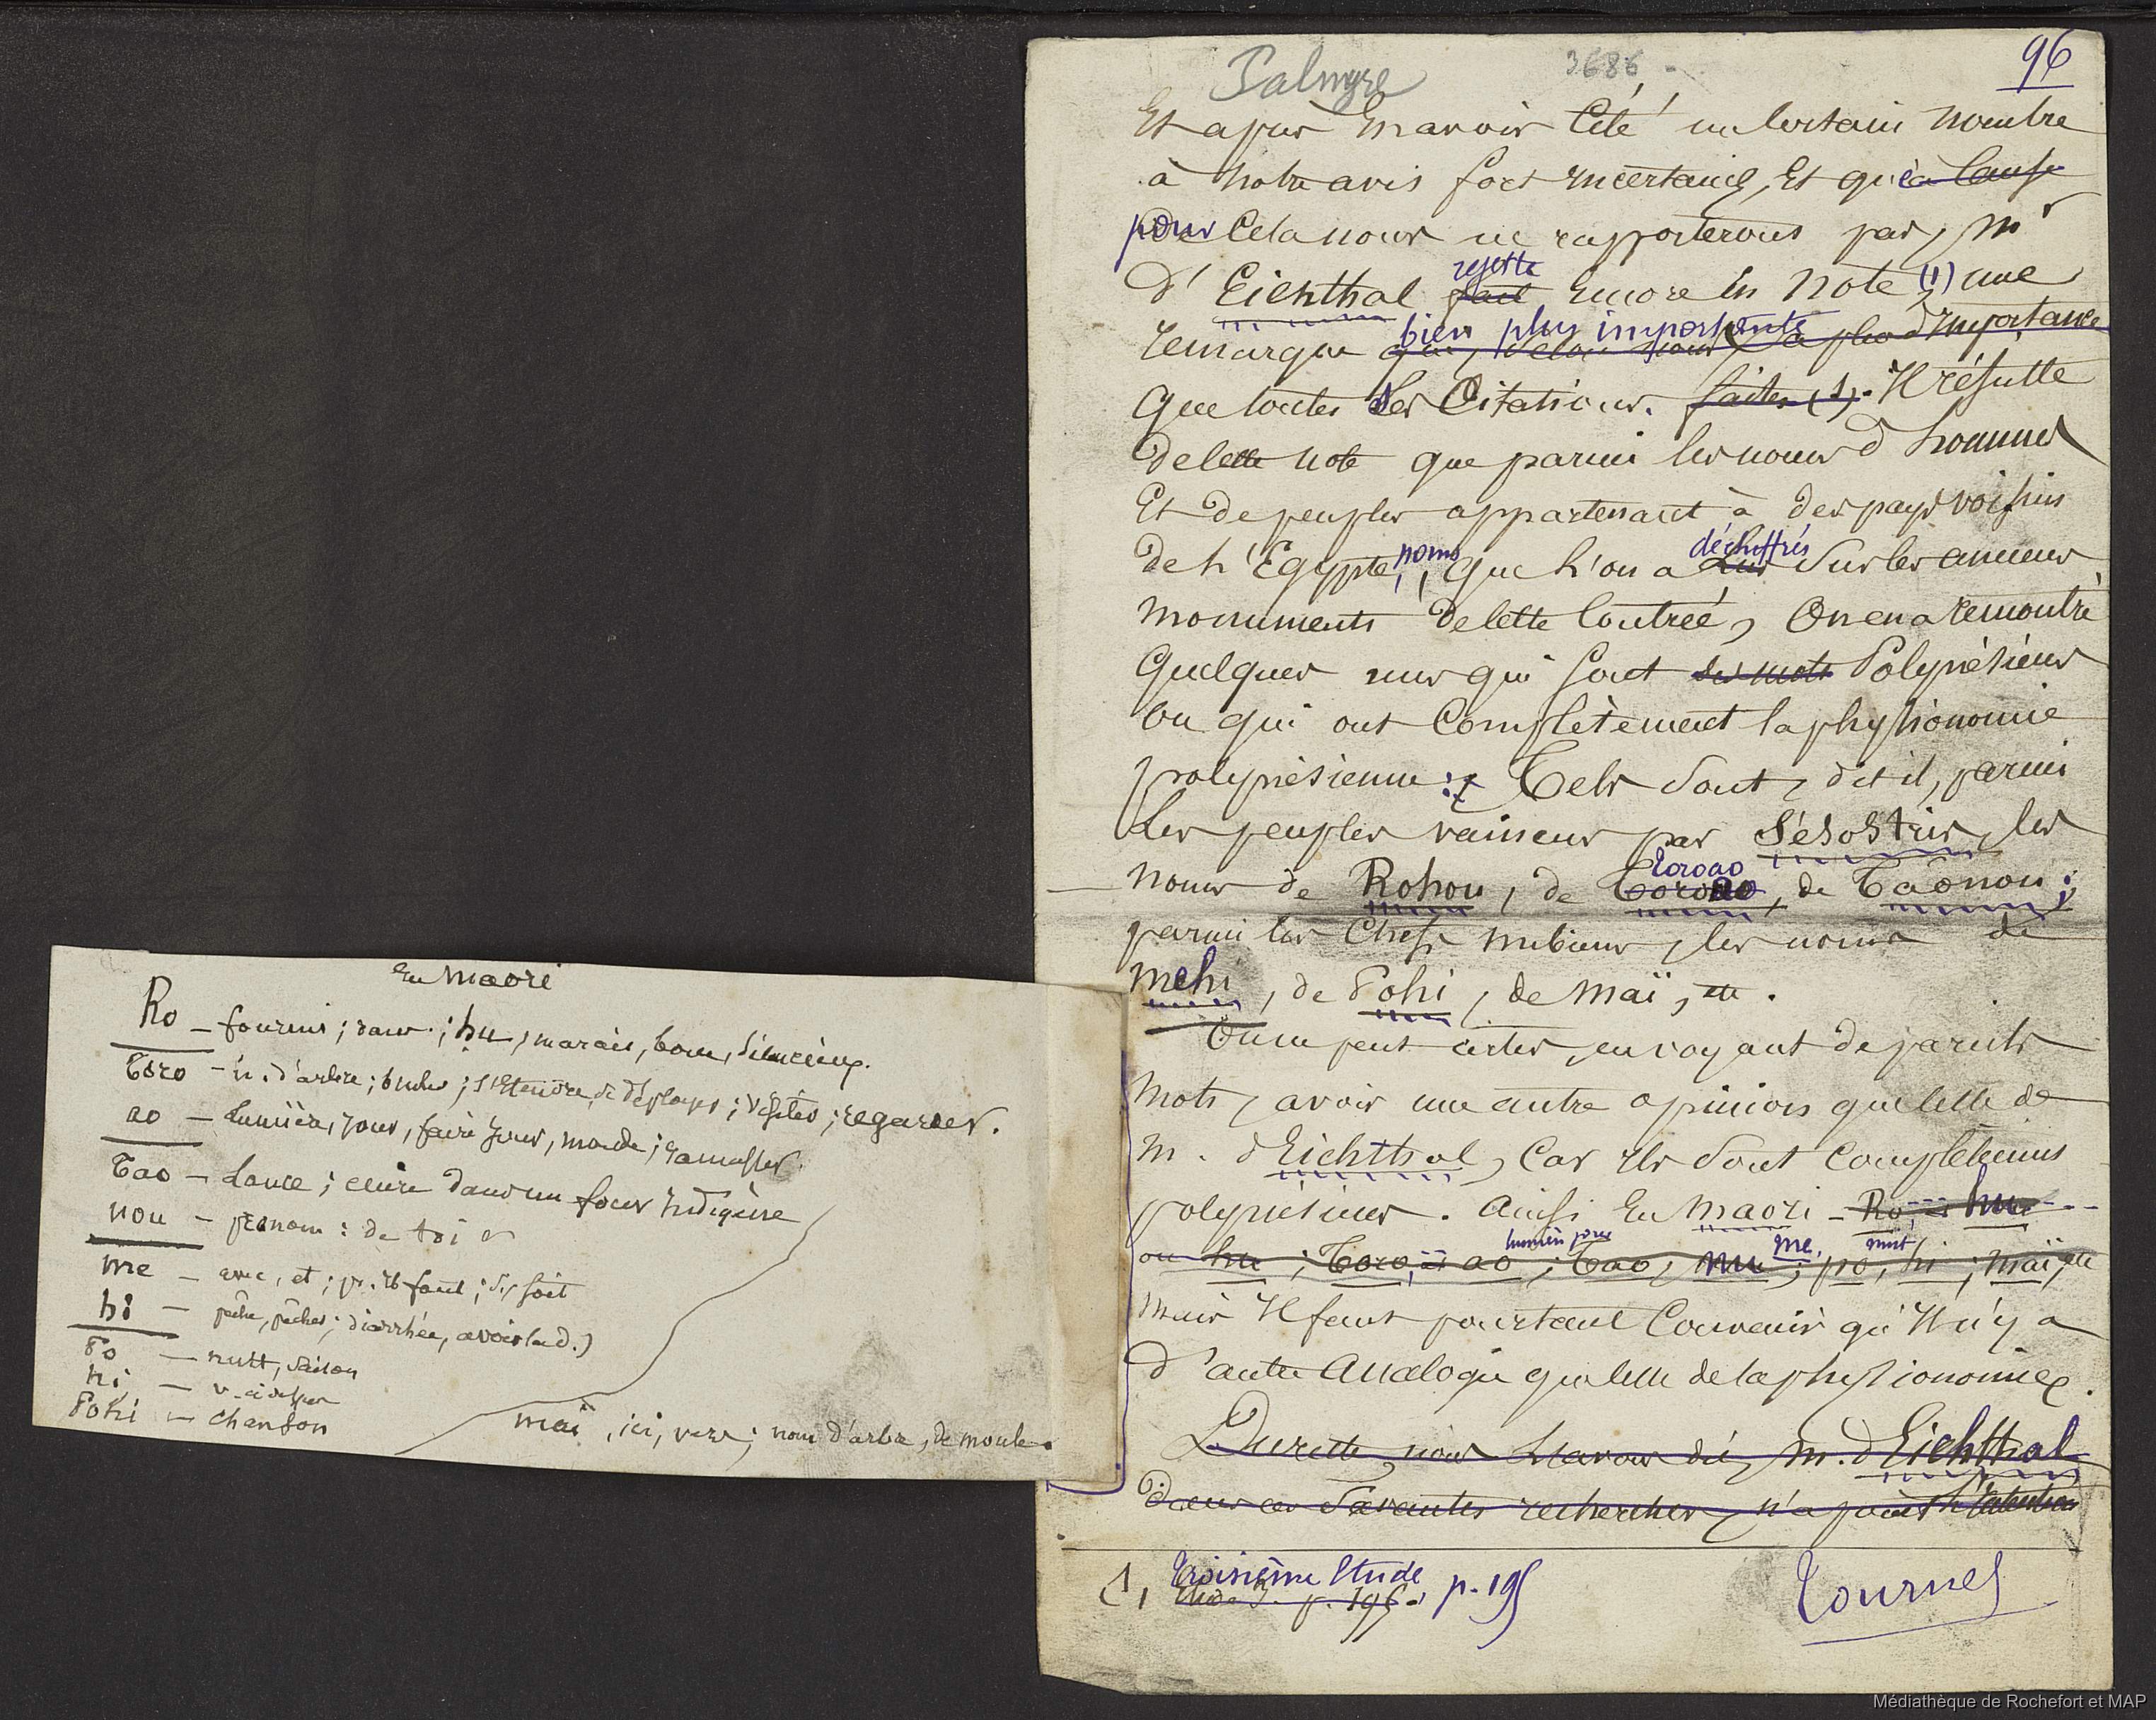 Palmyre
3686
96
Et après en avoir cité un certain nombre
à notre avis fort incertains, et qu'à cause
pour cela nous ne rapporterons pas, Mr
rejette
d'Eichthal fait encore en note (1) une
bien plus importante
remarque qui, selon nous, a plus d'importance
que toutes ses citations. faites (1). Il résulte
de cette note que parmi les noms d'hommes
Et de peuples appartenant à des pays voisins
noms déchiffrés
de l'Egypte, que l'on a lus sur les anciens
monuments de cette contrée, on en a remontré
quelques uns qui sont des mots Polynésiens
ou qui ont complètement la physionomie
polynésienne: Tels sont, dit il, parmi
les peuples vaincus par Sésostris, les
toroao
noms de Rohou, de Toroao, de Taonou;
parmi les chefs nubiens, les noms de
Mehi, de Pohi, de Maï, etc.
On ne peut certes, en voyant de pareils
mots, avoir une autre opinion que celle de
M. d'Eichthal, car ils sont complètement
polynésiens. Ainsi en Maori - Ro, hu
lumière jour me nuit
ou hu; Toro, ao; Tao, nu; po, hi; maï, etc
mais il faut pourtant convenir qu'il n'y a
d'autre analogie que celle de la physionomie.
Du reste, nous l'avons dit, M. d'Eichthal
dans ces savantes recherches, n'a point l'intention
(1, Troisième Etude p. 195
Etude 3. p. 195.
Tournes
en Maori
Ro - fourmi; dans; hu, marais, boue, silencieux.
Toro - n. d'arbre; bruler; s'étendre, se déployer; visiter; regarder.
ao - Lumière, jour, faire jour, monde; ramasser.
Tao - Lance; cuire dans un four indigène
nou - pronom: de toi
me - avec, et; pr. il faut; soit
hi - pêche, pêcher; diarrhée, avoir la d.)
Po - nuit, saison
hi - v. ci dessus
Pohi - chanson
maï, ici, vers; nom d'arbre, de moule.
Médiathèque de Rochefort et MAP